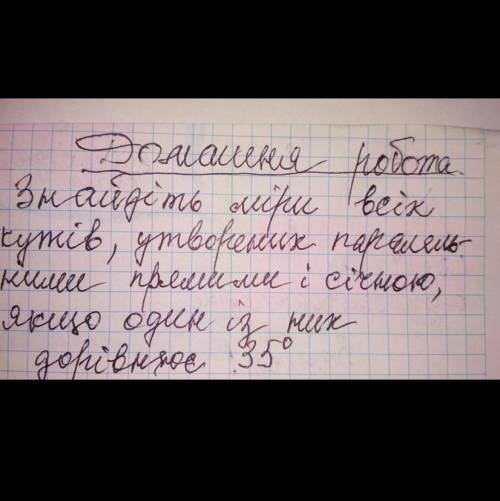 Домашня робота.
Знайдіть міри всіх
кутів, утворених паралель-
ними прямими і січною,
якщо один із них
дорівнює 35°